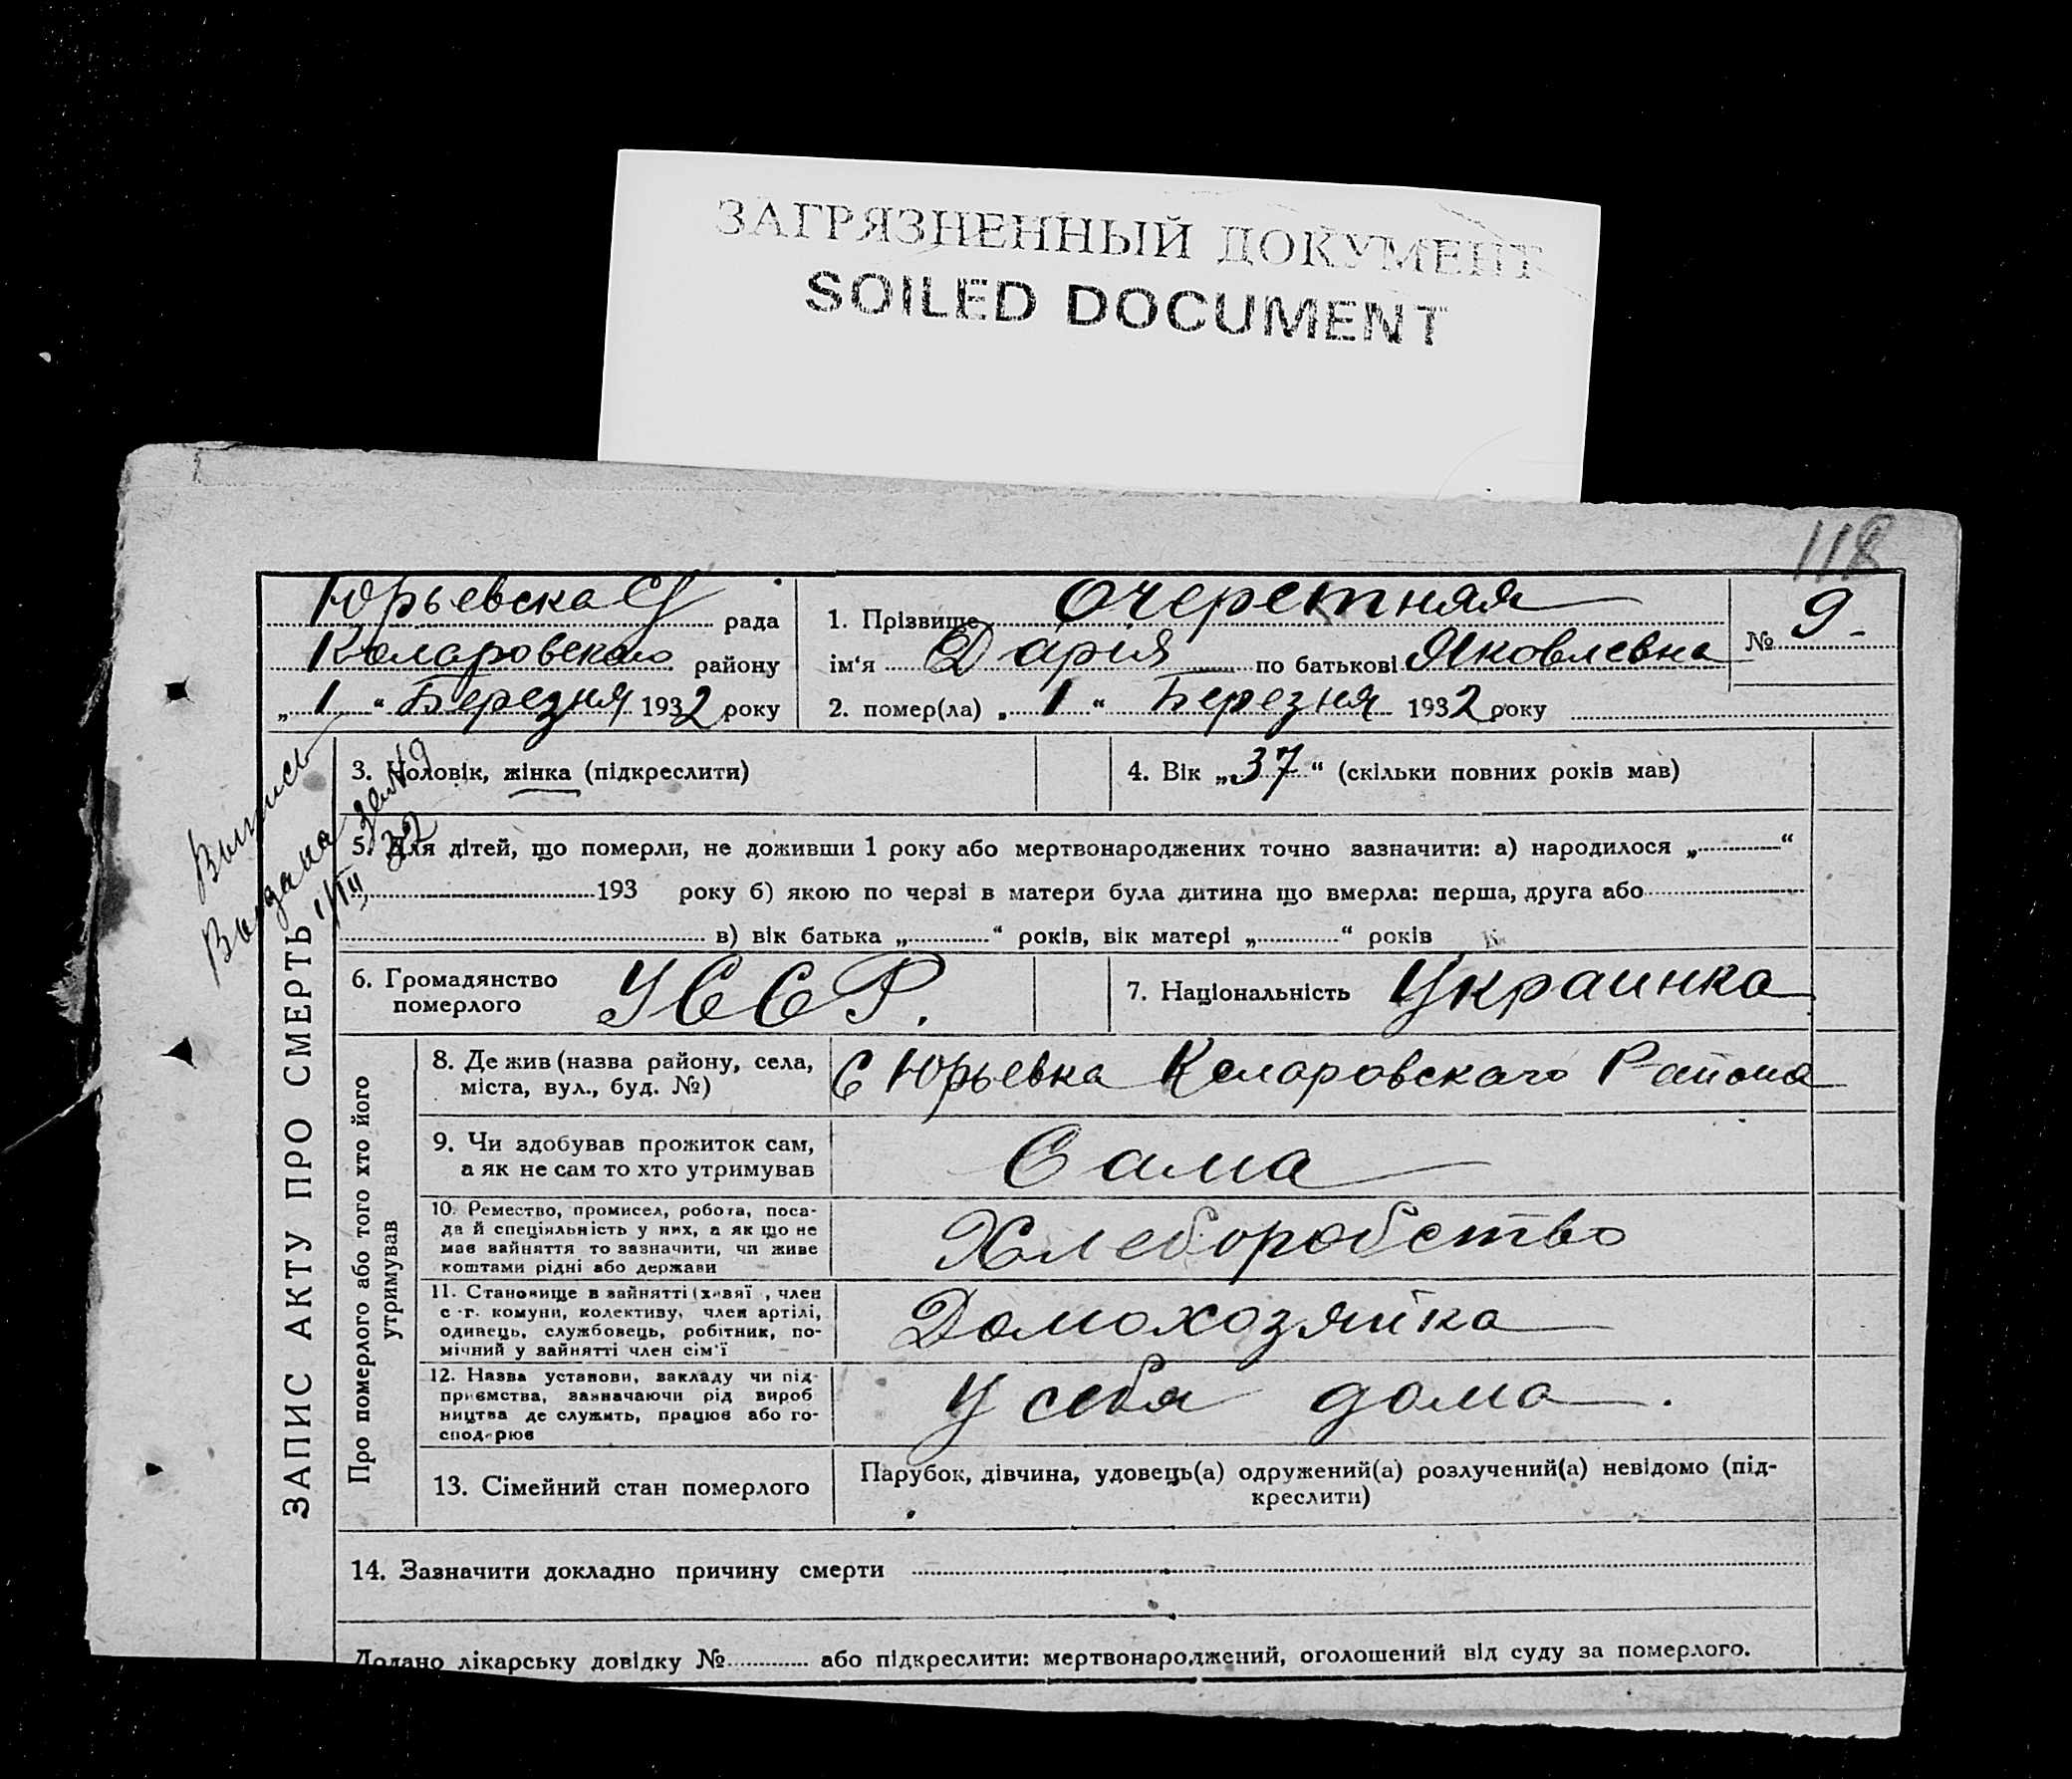 ЗАГРЯЗНЕННЫЙ ДОКУМЕНТ
SOILED DOCUMENT
118
Юрьевска С/ рада
Коларовского району
„ 1 “ Березня 1932 року
1. Прізвище Очеретняя
ім‘я Дария по батькові Яковлевна
№ 9-
2. помер(ла) „ 1 “ Березня 1932 року
Выпись
Выдана за № 9
1/III 32
ЗАПИС АКТУ ПРО СМЕРТЬ
3. Чоловік, жінка (підкреслити)
4. Вік „ 37 “ (скільки повних років мав)
5. Для дітей, що померли, не доживши 1 року або мертвонароджених точно зазначити: а) народилося „ “
193 року б) якою по черзі в матери була дитина що вмерла: перша, друга або
в) вік батька „ “ років, вік матері „ “ років
6. Громадянство
померлого
УССР.
7. Національність Украинка
Про померлого або того хто його
утримував
8. Де жив (назва району, села,
міста, вул., буд. №)
С Юрьевка Коларовскаго Района
9. Чи здобував прожиток сам,
а як не сам то хто утримував
Сама
10. Ремество, промисел, робота, поса-
да й спеціяльність у них, а як що не
має зайняття то зазначити, чи живе
коштами рідні або держави
Хлеборобство
11. Становище в зайнятті (хазяї , член
с-г. комуни, колективу, член артілі,
одинець, службовець, робітник, по-
мічний у зайнятті член сім'ї
Домохозяйка
12. Назва установи, закладу чи під-
приємства, зазначаючи рід вироб
ництва де служить, працює або го-
сподарює
У себя дома.
13. Сімейний стан померлого
Парубок, дівчина, удовець(а) одружений(а) розлучений(а) невідомо (під-
креслити)
14. Зазначити докладно причину смерти
Додано лікарську довідку № або підкреслити: мертвонароджений, оголошений від суду за померлого.